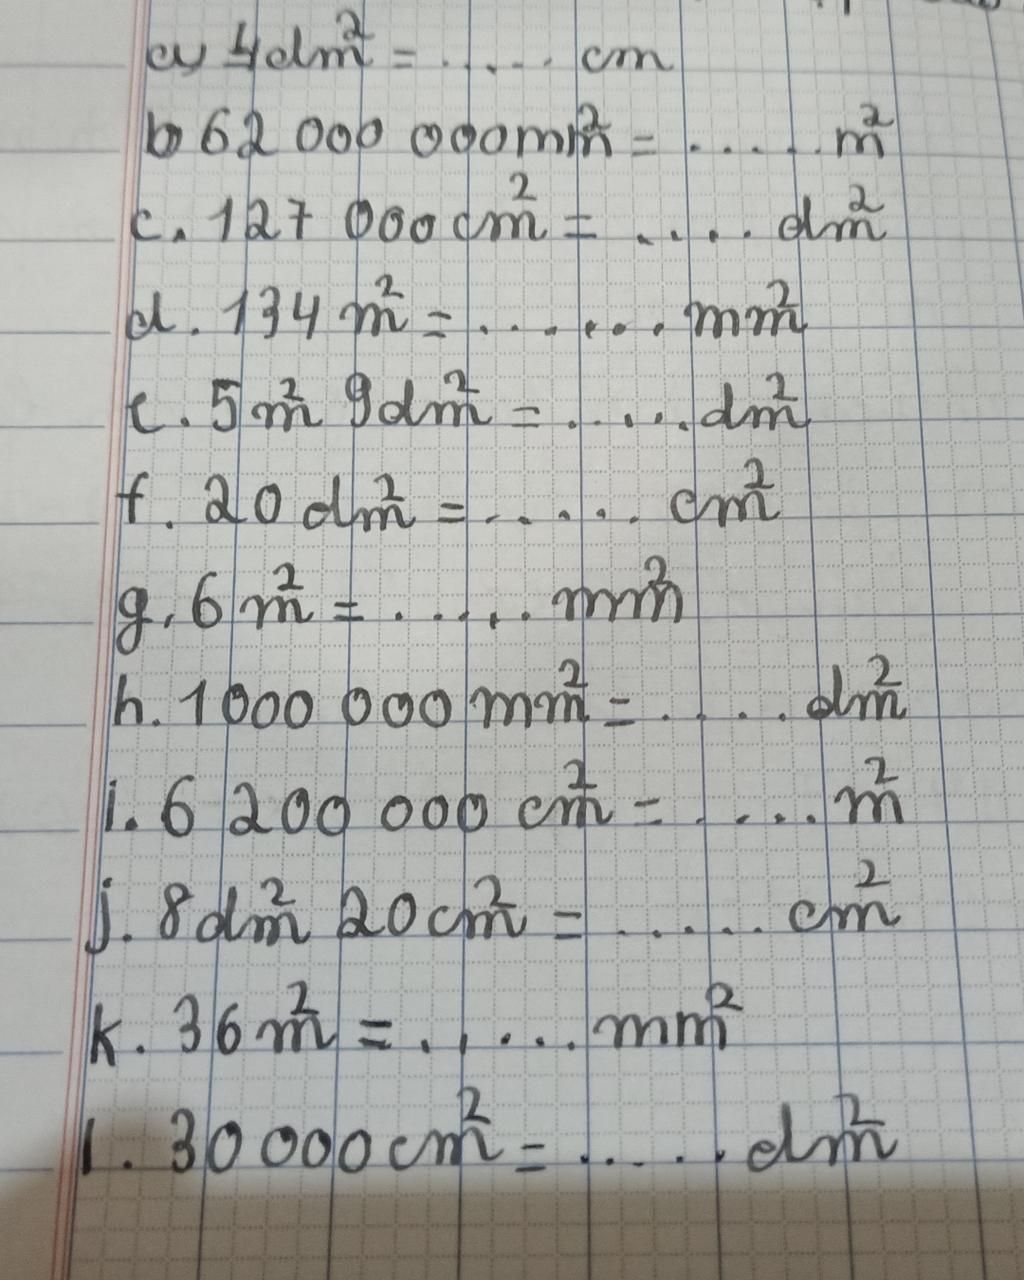 a, 4dm² = ..... cm
b 62 000 000mm² = ..... m²
c. 127 000cm² = ..... dm²
d. 134 m² = ....... mm²
e. 5m² 9dm² = ..... dm²
f. 20 dm² = ...... cm²
g. 6 m² = ...... mm²
h. 1 000 000 mm² = ..... dm²
i. 6 200 000 cm² = ..... m²
j. 8dm² 20cm² = ...... cm²
k. 36m² = ...... mm²
l. 30 000cm² = ..... dm²